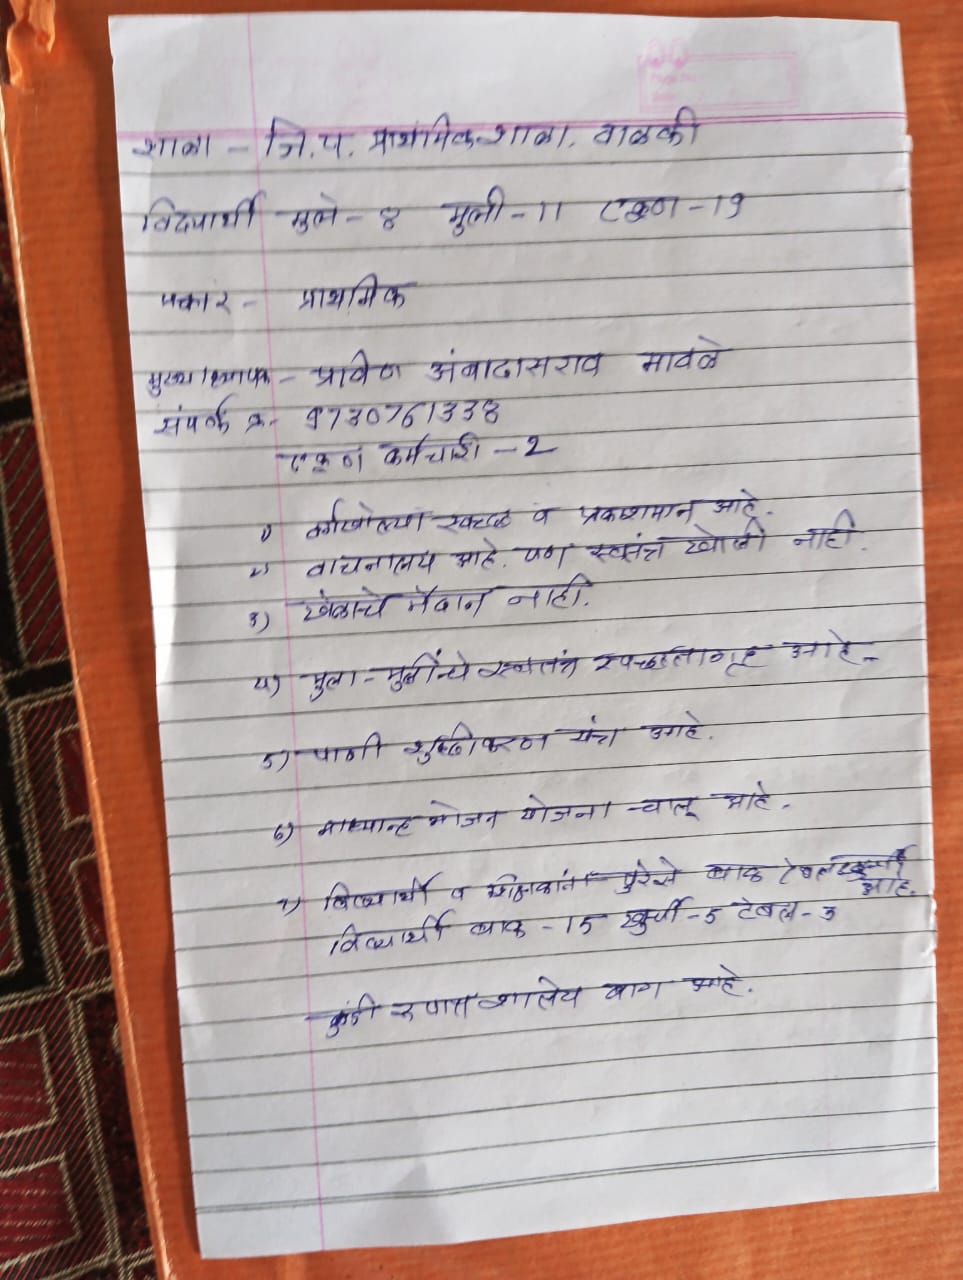 शाळा - जि.प. प्राथमिक शाळा, वाळकी
विद्यार्थी मुले - ४ मुली - 11 एकूण - 19
प्रकार - प्राथमिक
मुख्याध्यापक - प्राविण अंबादासराव मावळे
संपर्क क्र.- 9730761338
एकूण कर्मचारी - 2
1) वर्गखोल्या स्वच्छ व प्रकाशमान आहे.
2) वाचनालय आहे. पण स्वतंत्र खोली नाही.
3) खेळाचे मैदान नाही.
4) मुला-मुलींचे स्वतंत्र स्वच्छतागृह आहे.
5) पाणी शुद्धीकरण यंत्र आहे.
6) माध्यान्ह भोजन योजना चालू आहे.
7) विद्यार्थी व शिक्षकांना पुरेसे बाक टेबल खुर्ची आहे.
विद्यार्थी बाक - 15 खुर्ची - 5 टेबल - 3
कुंडी रुपात शालेय बाग आहे.